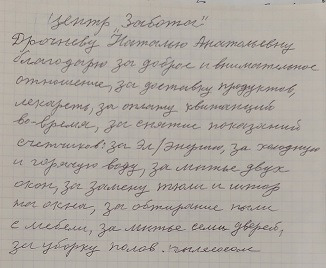 Центр Заботы"
Дрочневу Наталью Анатольевну
благодарю за доброе и внимательное
отношение, за доставку продуктов,
лекарств, за оплату квитанций
во-время, за снятие показаний
счетчиков: за Эл/Энергию, за холодную
и горячую воду, за мытье двух
окон, за замену тюли и штор
на окна, за обтирание пыли
с мебели, за мытье семи дверей,
за уборку полов пылесосом